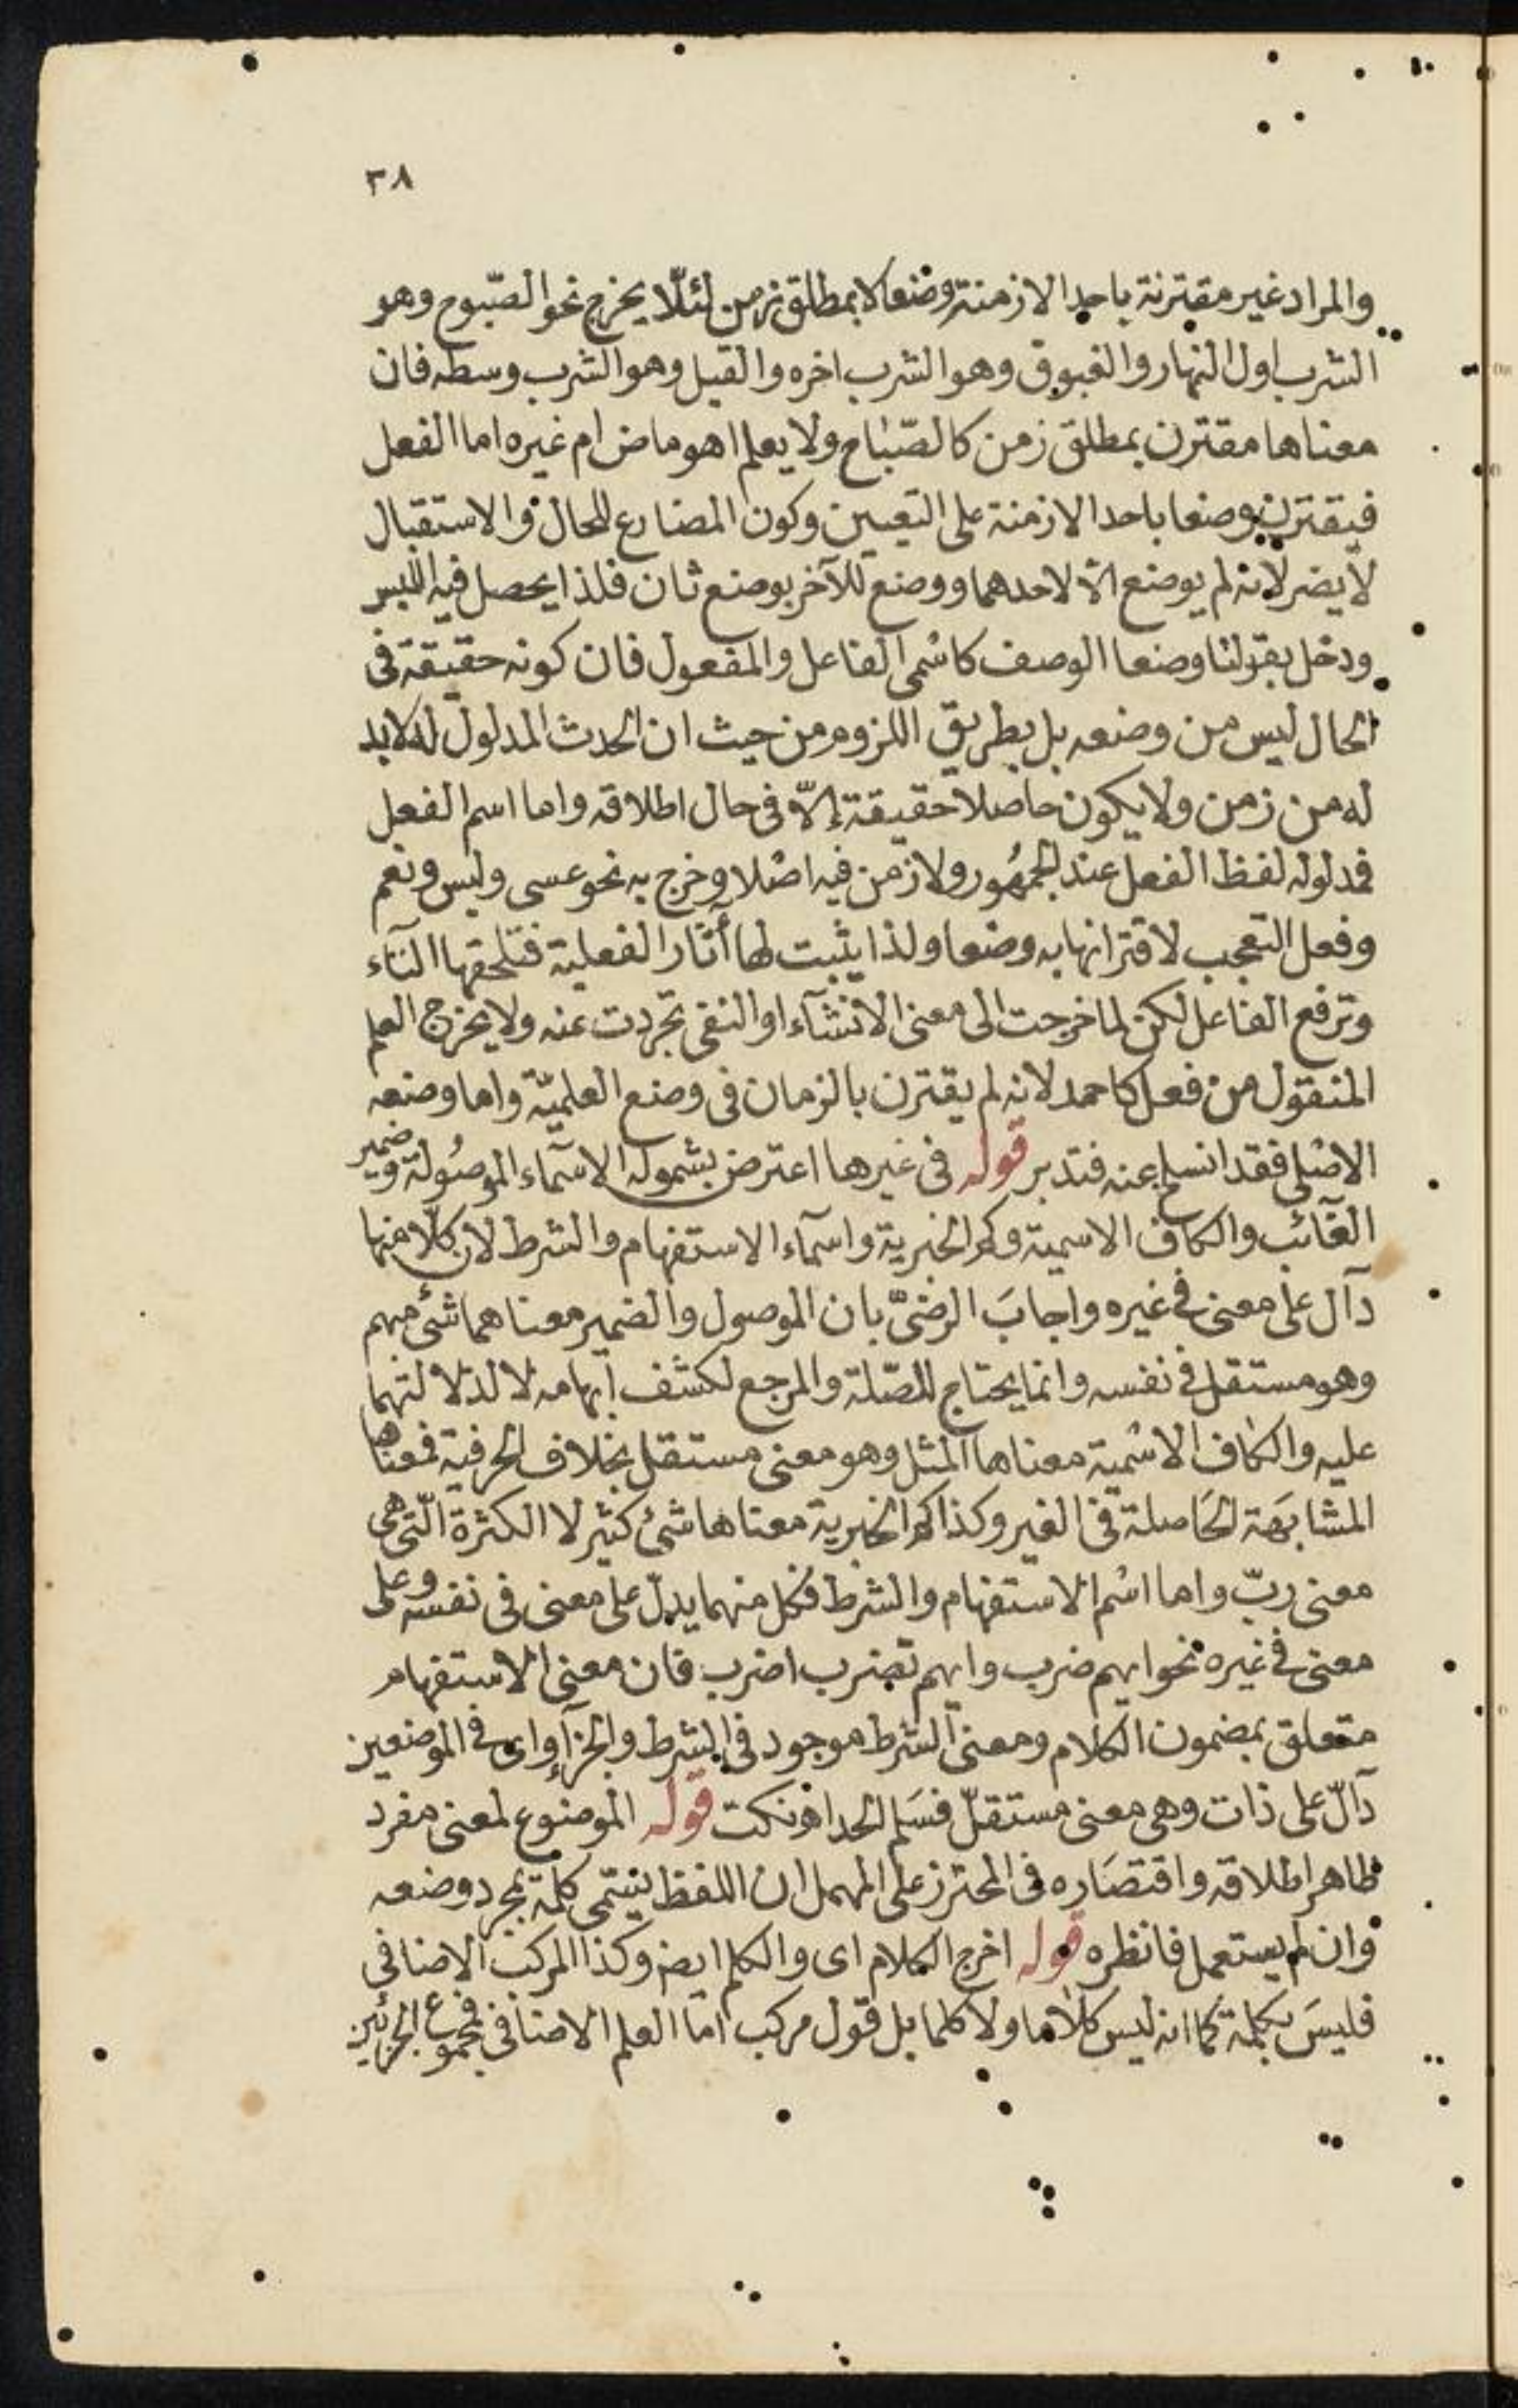 ٣٨
والمراد غير مقترنة باحد الازمنة وضعا لا بمطلق زمن لئلّا يخرج نحو الصّبوح وهو
الشرب اول النهار والغبوق وهو الشرب اخره والقيل وهو الشرب وسطه فان
معناها مقترن بمطلق زمن كالصّباح ولا يعلم اهو ماض ام غيره اما الفعل
فيقترن وضعا باحد الازمنة على التعيين وكون المضارع للحال والاستقبال
لا يضر لانه لم يوضع الا لاحدهما ووضع للآخر بوضع ثان فلذا يحصل فيه اللبس
ودخل بقولنا وضعا الوصف كاسْمى الفاعل والمفعول فان كونه حقيقة فى
الحال ليس من وضعه بل بطريق اللزوم من حيث ان الحدث المدلول له لابد
له من زمن ولا يكون حاصلا حقيقة إلّا فى حال اطلاقه واما اسم الفعل
فمدلوله لفظ الفعل عند الجمهُور ولا زمن فيه اصْلا وخرج به نحو عسى وليس ونعم
وفعل التعجب لاقترانها به وضعا ولذا يثبت لها أثار الفعلية فتلحقها التآء
وترفع الفاعل لكن لما خرجت الى معنى الانشآء او النفى تجردت عنه ولا يخرج العلم
المنقول من فعل كاحمد لانه لم يقترن بالزمان فى وضع العلميّة واما وضعه
الاصْلى فقد انسلخ عنه فتدبر قوله فى غيرها اعترض بشموله الاسمآء الموصُولة وضمير
الغآئب والكاف الاسمية وكم الخبرية واسمآء الاستفهام والشرط لان كلّا منها
دآل على معنى فى غيره واجابَ الرضىّ بان الموصول والضمير معناهما شئ مبهم
وهو مستقل فى نفسه وانما يحتاج للصّلة والمرجع لكشف ابهامه لا لدلالتهما
عليه والكاف الاسْمية معناها المثل وهو معنى مستقل بخلاف الحرفية فمعناها
المشابَهة الحَاصلة فى الغير وكذا كم الخبرية معناها شئ كثير لا الكثرة الّتى هى
معنى ربّ واما اسْم الاستفهام والشرط فكل منهما يدلّ على معنى فى نفسه وعلى
معنى فى غيره نحو ايهم ضرب وايهم تضرب اضرب فان معنى الاستفهام
متعلق بمضمون الكلام ومعنى الشرط موجود فى الشرط والجزآء واى فى الموضعين
دآلّ على ذات وهى معنى مستقلّ فسَلم الحد اهـ نكت قوله الموضوع لمعنى مفرد
ظاهر اطلاقه واقتصَاره فى المحترز على المهمل ان اللفظ يسمى كلمة بمجرد وضعه
وان لم يستعمل فانظره قوله اخرج الكلام اى والكلم ايضا وكذا المركب الاضافى
فليسَ بكلمة كما انه ليس كلاما ولا كلما بل قول مركب امّا العلم الاضافى فمجموع الجزئين